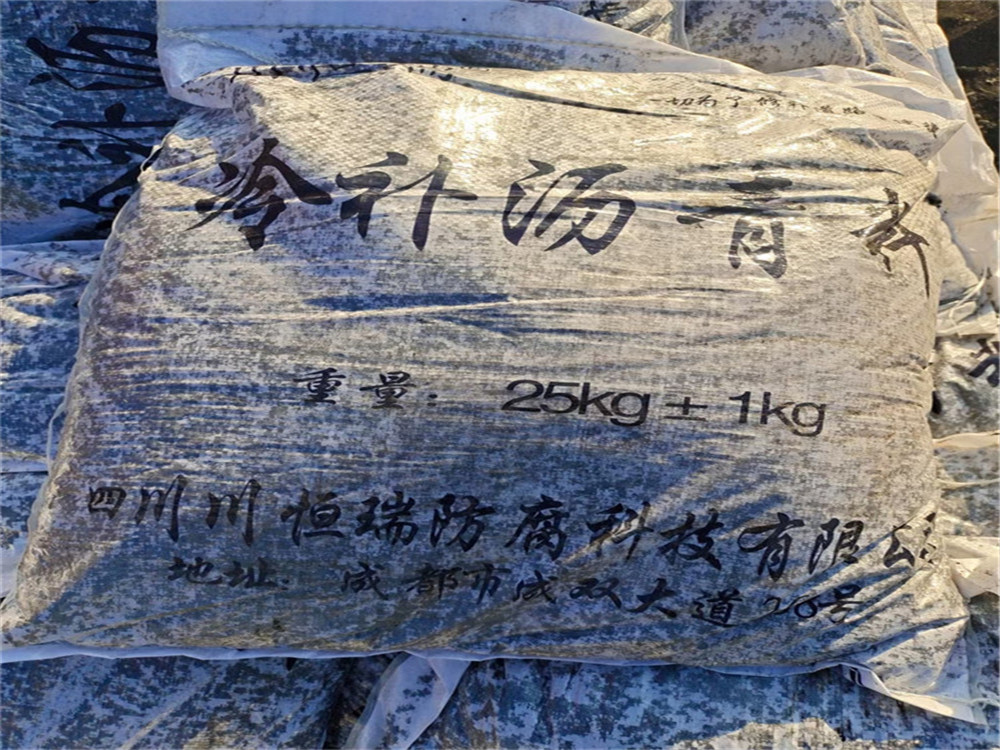 一切为了
冷补沥青料
重量: 25kg±1kg
四川川恒瑞防腐科技有限公司
地址: 成都市成双大道28号